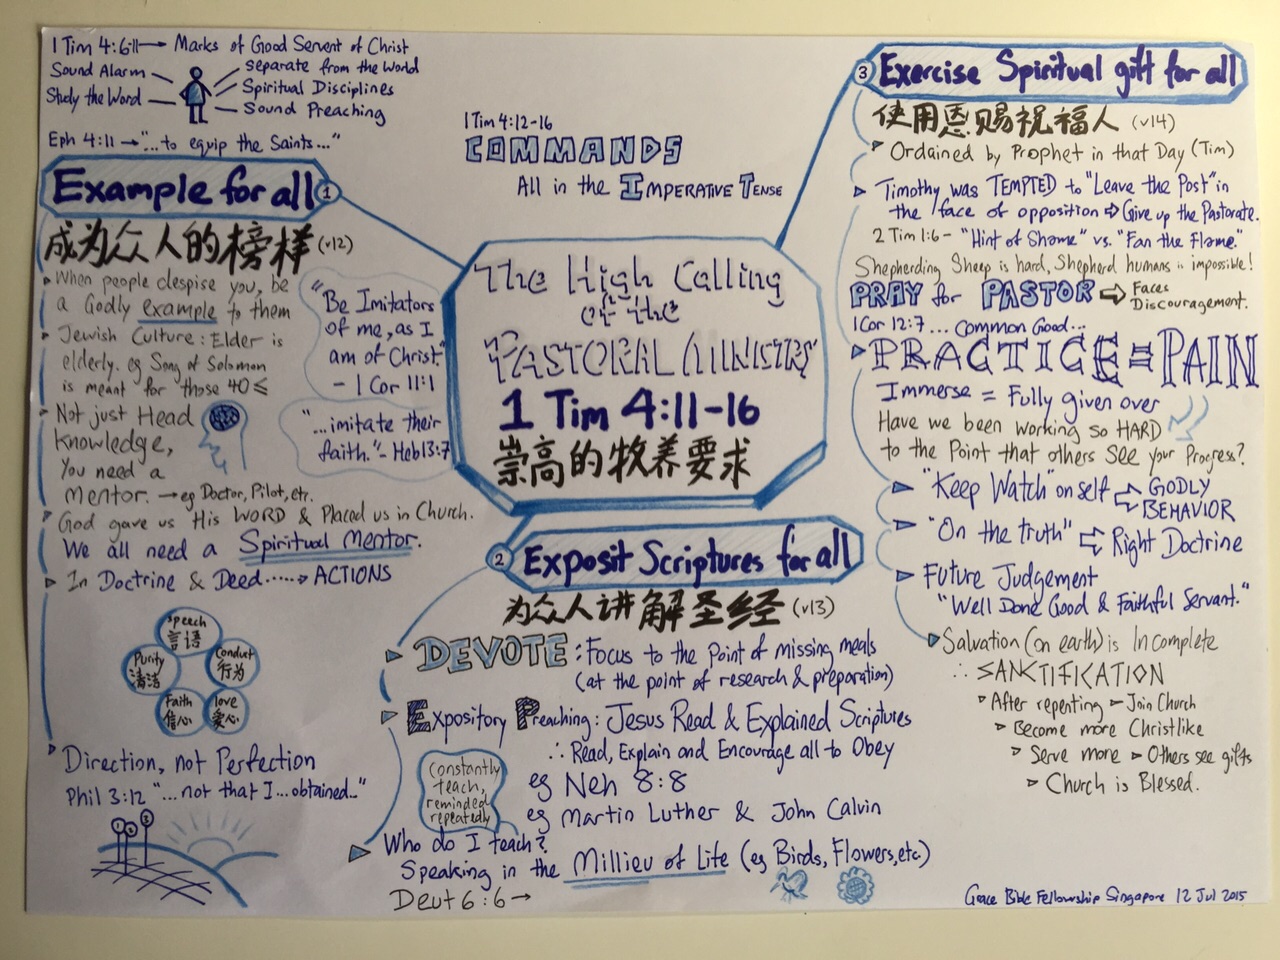 1 Tim 4:6-11 → Marks of Good Servent of Christ
Sound Alarm
Study the Word
separate from the World
Spiritual Disciplines
Sound Preaching
Eph 4:11 → "...to equip the Saints..."
Example for all 1
成为众人的榜样 (v12)
When people despise you, be
a Godly example to them
Jewish Culture: Elder is
elderly. eg Song of Solomon
is meant for those 40≤
Not just Head
Knowledge,
You need a
Mentor. → eg Doctor, Pilot, etc.
God gave us His WORD & Placed us in Church.
We all need a Spiritual Mentor.
In Doctrine & Deed.....→ ACTIONS
speech
言语
Purity
清洁
Conduct
行为
Faith
信心
love
爱心
Direction, not Perfection
Phil 3:12 "...not that I...obtained..."
"Be Imitators
of me, as I
am of Christ"
- 1 Cor 11:1
"...imitate their
faith." - Heb 13:7
1 Tim 4:12-16
COMMANDS
All in the IMPERATIVE TENSE
The High Calling
of the
PASTORAL MINISTRY
1 Tim 4:11-16
崇高的牧养要求
2 Exposit Scriptures for all
为众人讲解圣经 (v13)
DEVOTE: Focus to the Point of missing meals
(at the point of research & preparation)
Expository Preaching: Jesus Read & Explained Scriptures
∴ Read, Explain and Encourage all to Obey
Constantly
teach,
reminded
repeatedly
eg Neh 8:8
eg Martin Luther & John Calvin
Who do I teach?
Speaking in the Millieu of Life (eg Birds, Flowers, etc.)
Deut 6:6 →
3 Exercise Spiritual gift for all
使用恩赐祝福人 (v14)
Ordained by Prophet in that Day (Tim)
Timothy was TEMPTED to "Leave the Post" in
the face of opposition ⇨ Give up the Pastorate.
2 Tim 1:6 - "Hint of Shame" vs. "Fan the Flame."
Shepherding Sheep is hard, Shepherd humans is impossible!
PRAY for PASTOR ⇨ Faces
Discouragement.
1 Cor 12:7... Common Good...
PRACTICE = PAIN
Immerse = Fully given over
Have we been working so HARD
to the Point that others See your Progress?
"Keep Watch" on self ⇨ GODLY
BEHAVIOR
"On the truth" ⇨ Right Doctrine
Future Judgement
"Well Done Good & Faithful Servant."
Salvation (on earth) is Incomplete
∴ SANCTIFICATION
After repenting ► Join Church
Become more Christlike
Serve more ► Others see gifts
Church is Blessed.
Grace Bible Fellowship Singapore 12 Jul 2015